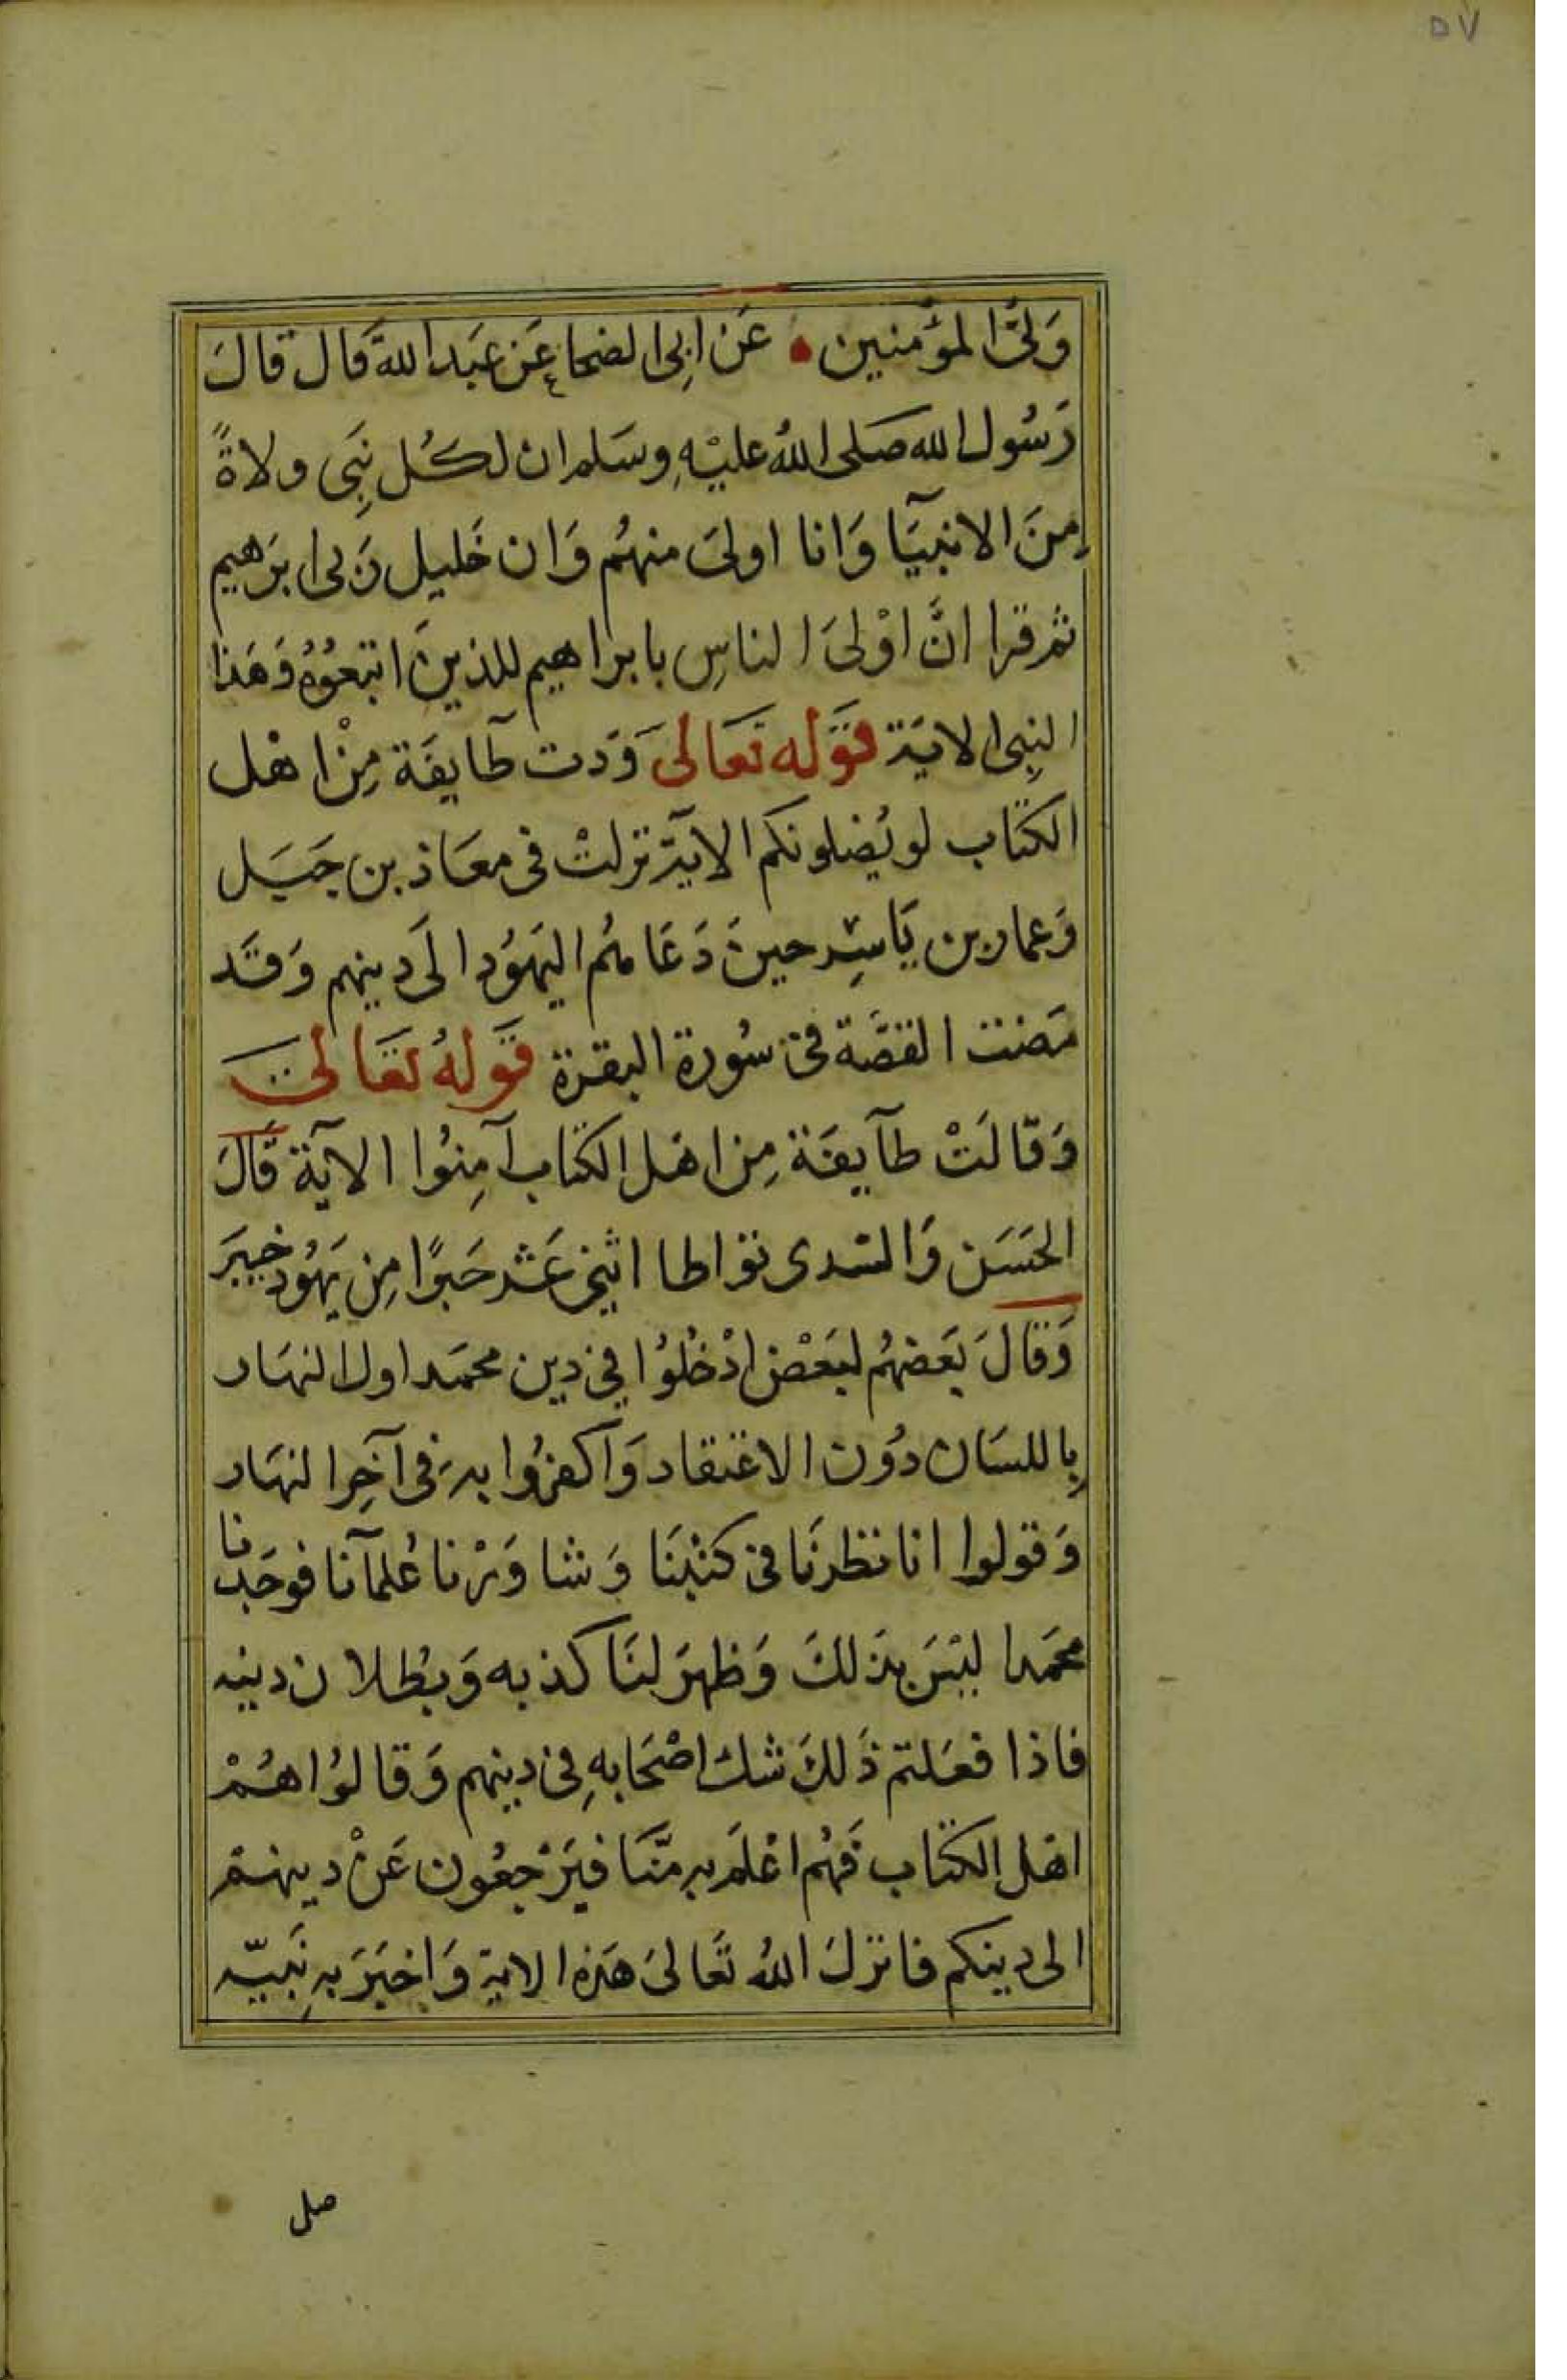 ٥٧
وَلىُّ المؤمنين ۰ عَن ابِى الضحاع عَن عَبد الله قَال قالَ
رَسُول الله صَلى اللهُ عليْهِ وسَلم ان لكُل نِبَى ولاةً
مِنَ الانبيَآ وَانا اولىَ منهُم وَان خَليل رَبى ابرَهيم
ثم قرا انَّ اوْلىَ الناسِ بابراهيم للذينَ اتبعُوُهُ وَهَذا
النبِى الايَة قوَله تعَالىَ وَدت طايفَة مِنْ اهْل
الكتاب لو يُضلونكم الآية نزلتْ فى معَاذ بن جَبَل
وَعمار بن يَاسِر حينَ دَعَا هُم اليَهوُد الىَ دينهم وَقَد
مَضت القصَّة فى سُورة البقرة قوَلهُ تعَالىَ
وَقالَتْ طآيفَة مِن اهَل الكتاب آمِنُوا الآية قَالَ
الحَسَن وَالسدى تواطا اثنِى عَشر حَبرًا مِن يَهوُد خيبَر
وَقالَ بَعَضهُم لبَعْض ادْخُلوُا فِى دين محمَد اول النهَار
بِاللسَان دوُن الاعتقاد وَاكفرُوا به فى آخِر النهَار
وَقولوا انا نظرنَا فى كتبنَا وَشاوَرْنا عُلمآنا فوجَدنا
محمَدا ليسَ بذَلكَ وَظهرَ لنَا كذبه وَبطلان دينه
فاذا فعَلتم ذَلكَ شك اصْحَابهِ فى دينهم وَقالوُا هُمْ
اهَل الكتاب فَهُم اعْلَم به منَّا فيَرْجعُون عَنْ دينهم
الى دينكم فانزلَ اللهُ تعَالىَ هَذه الاية وَاخبَرَ بهِ نَبيّه
صلى